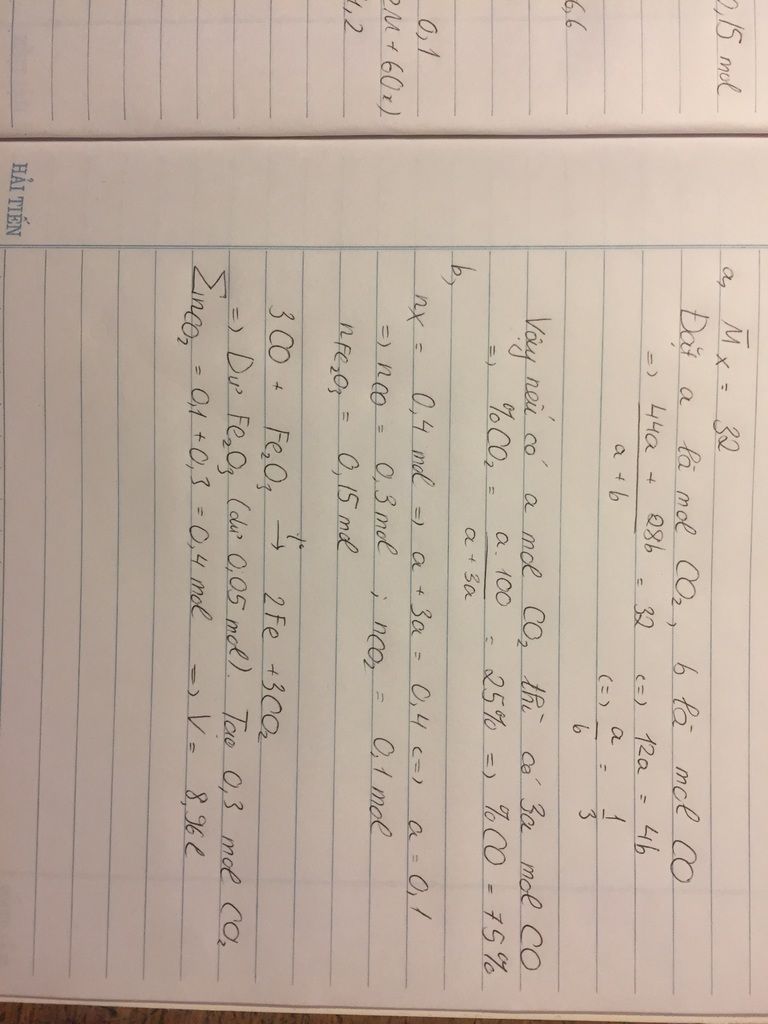 0,15 mol
6,6
0,1
2M + 60x)
1,2
HẢI TIẾN
a, M̄ x = 32
Đặt a là mol CO₂, b là mol CO
=) 44a + 28b / a + b = 32 (=) 12a = 4b
(=) a / b = 1 / 3
Vậy nếu có a mol CO₂ thì có 3a mol CO
=) %CO₂ = a. 100 / a + 3a = 25% =) %CO = 75%
b,
nX = 0,4 mol =) a + 3a = 0,4 (=) a = 0,1
=) nCO = 0,3 mol ; nCO₂ = 0,1 mol
nFe₂O₃ = 0,15 mol
3CO + Fe₂O₃ t° → 2Fe + 3CO₂
=) Dư Fe₂O₃ (dư 0,05 mol). Tạo 0,3 mol CO₂
∑nCO₂ = 0,1 + 0,3 = 0,4 mol =) V = 8,96l